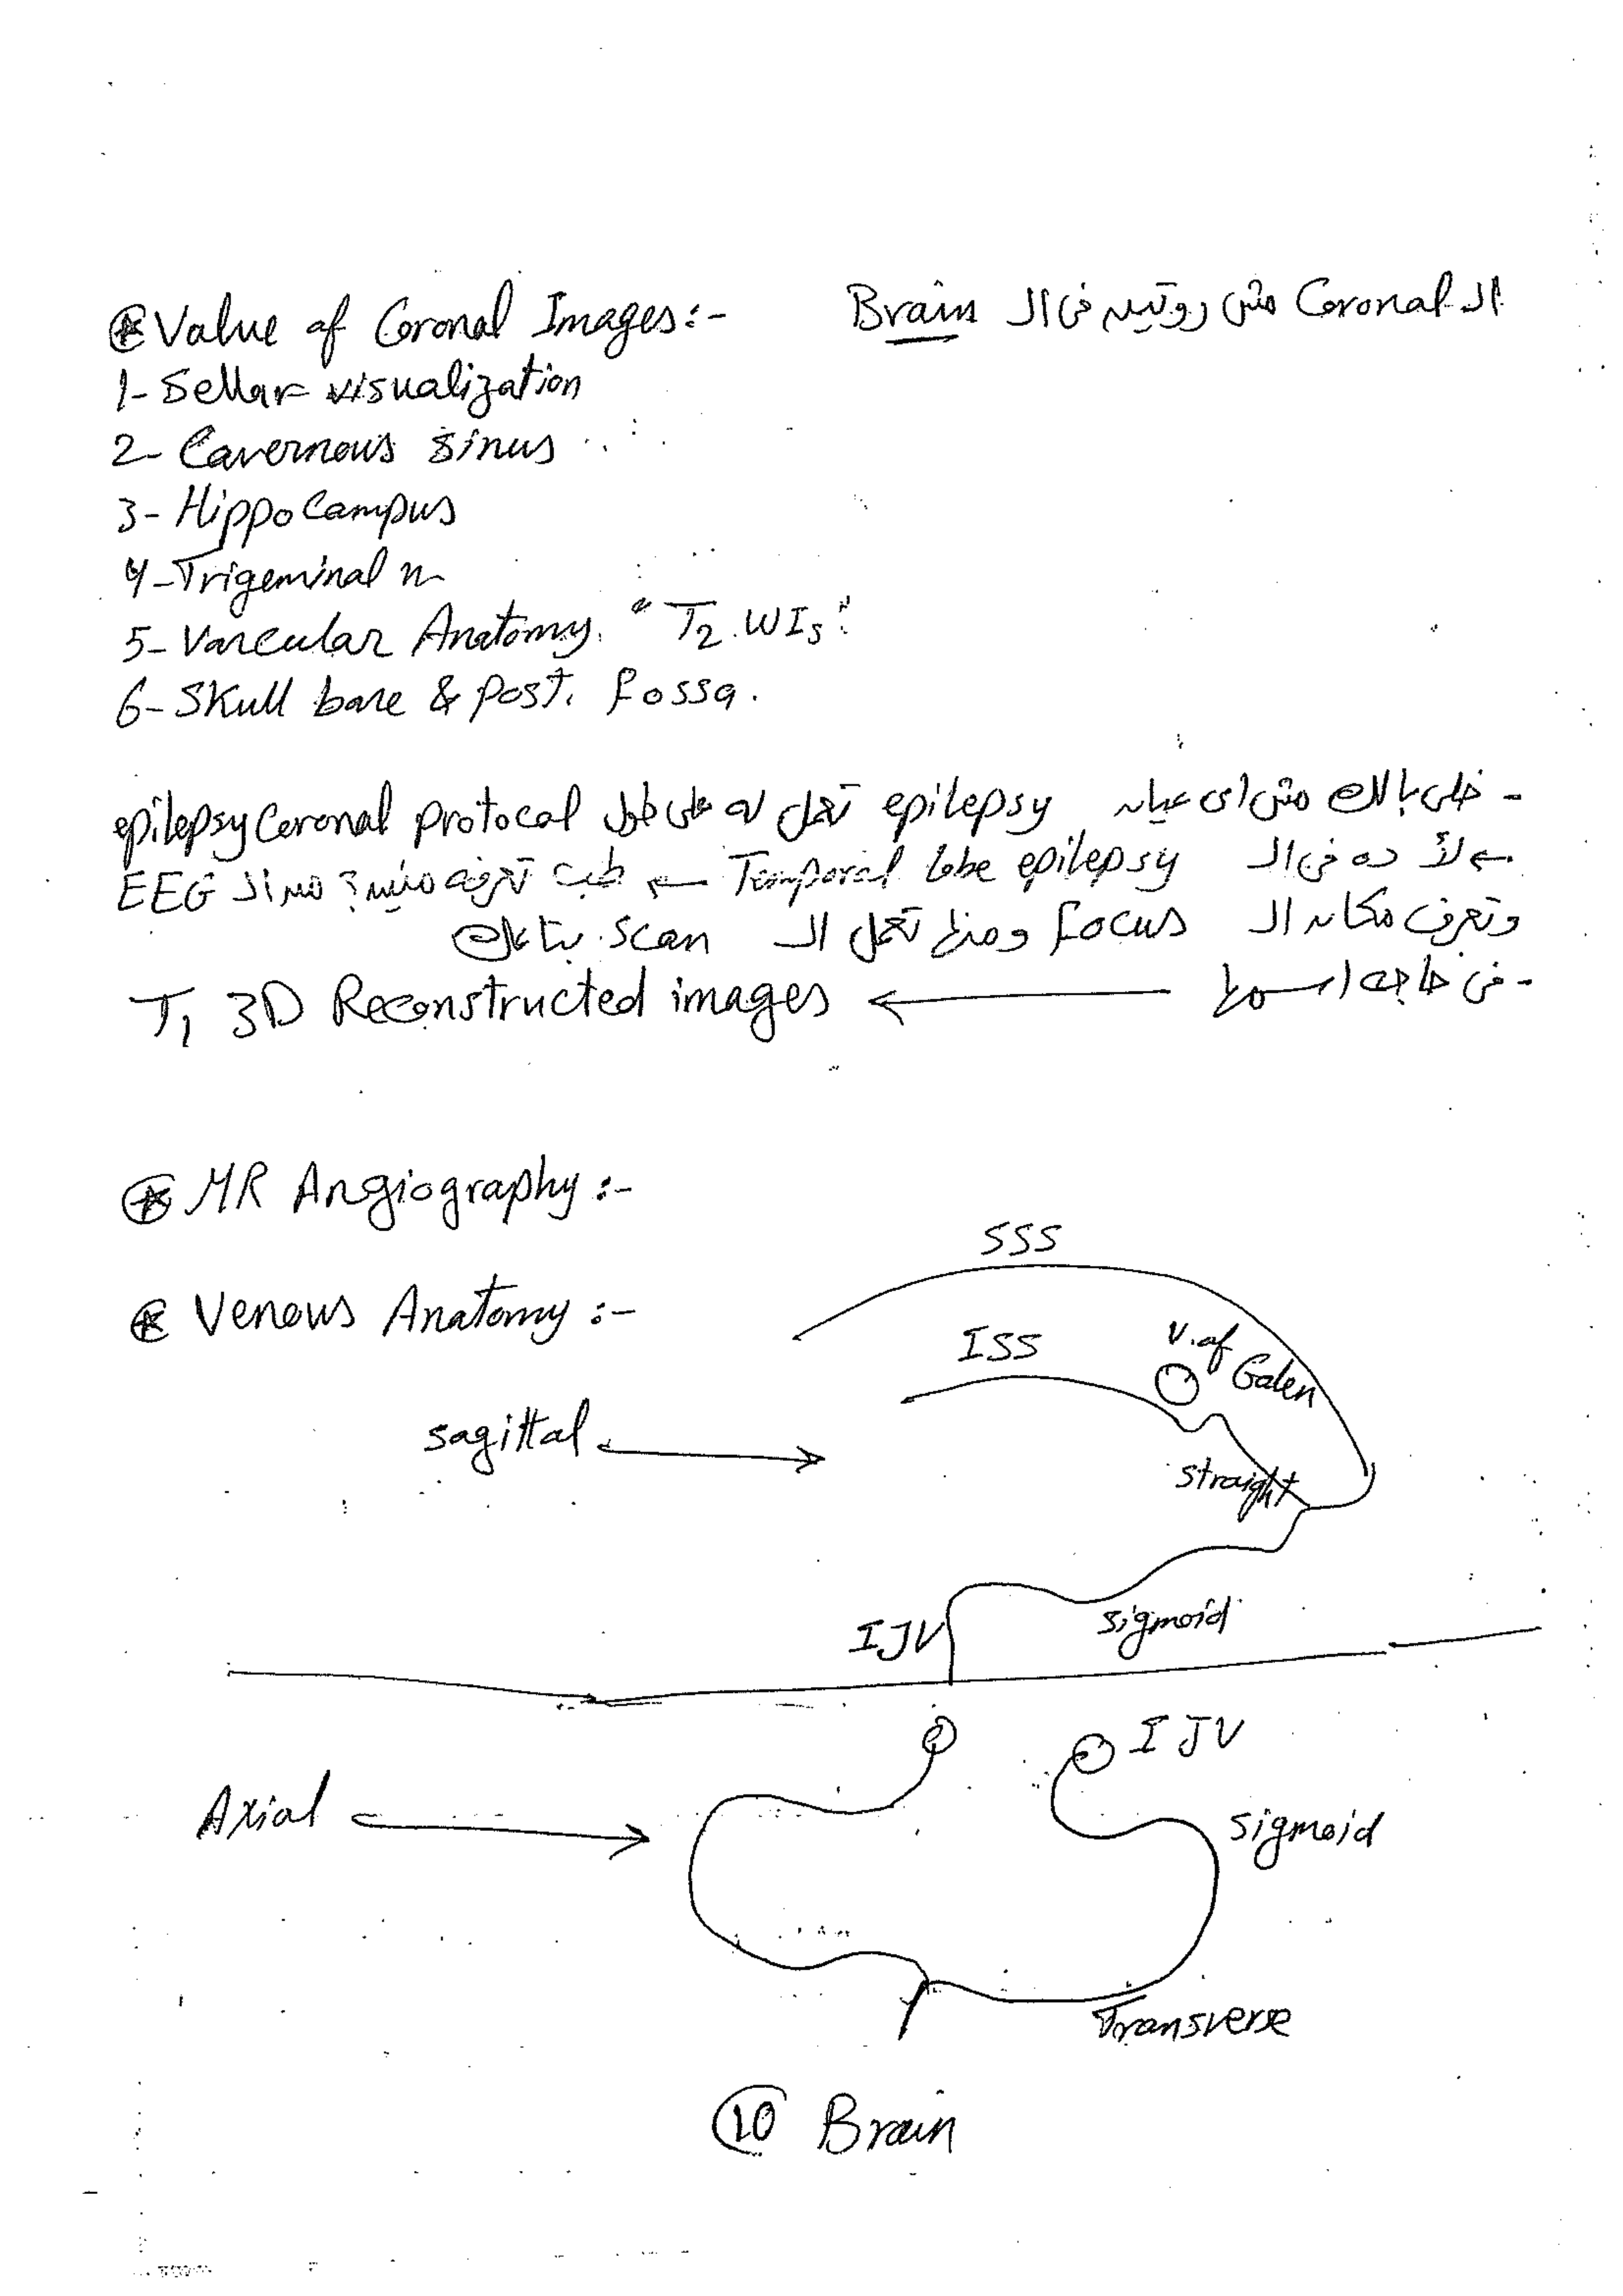 Value of Coronal Images:-
الـ Coronal مش روتين فى الـ Brain
1- Sellar visualization
2- Cavernous sinus
3- Hippocampus
4- Trigeminal n
5- Vascular Anatomy. "T2 WIs"
6- Skull base & post. fossa.
- خلى بالك مش اى عيان epilepsy تعمل له على طول epilepsy Coronal protocol
← لأ ده فى الـ Temporal lobe epilepsy ← طب تعرفه منين؟ من الـ EEG
وتعرف مكان الـ focus ومنها تعمل الـ scan بتاعك
- فى حاجه اسمها ← T1 3D Reconstructed images
MR Angiography :-
Venous Anatomy :-
SSS
ISS
V. of Galen
sagittal
straight
IJV
sigmoid
IJV
Axial
sigmoid
Transverse
10 Brain